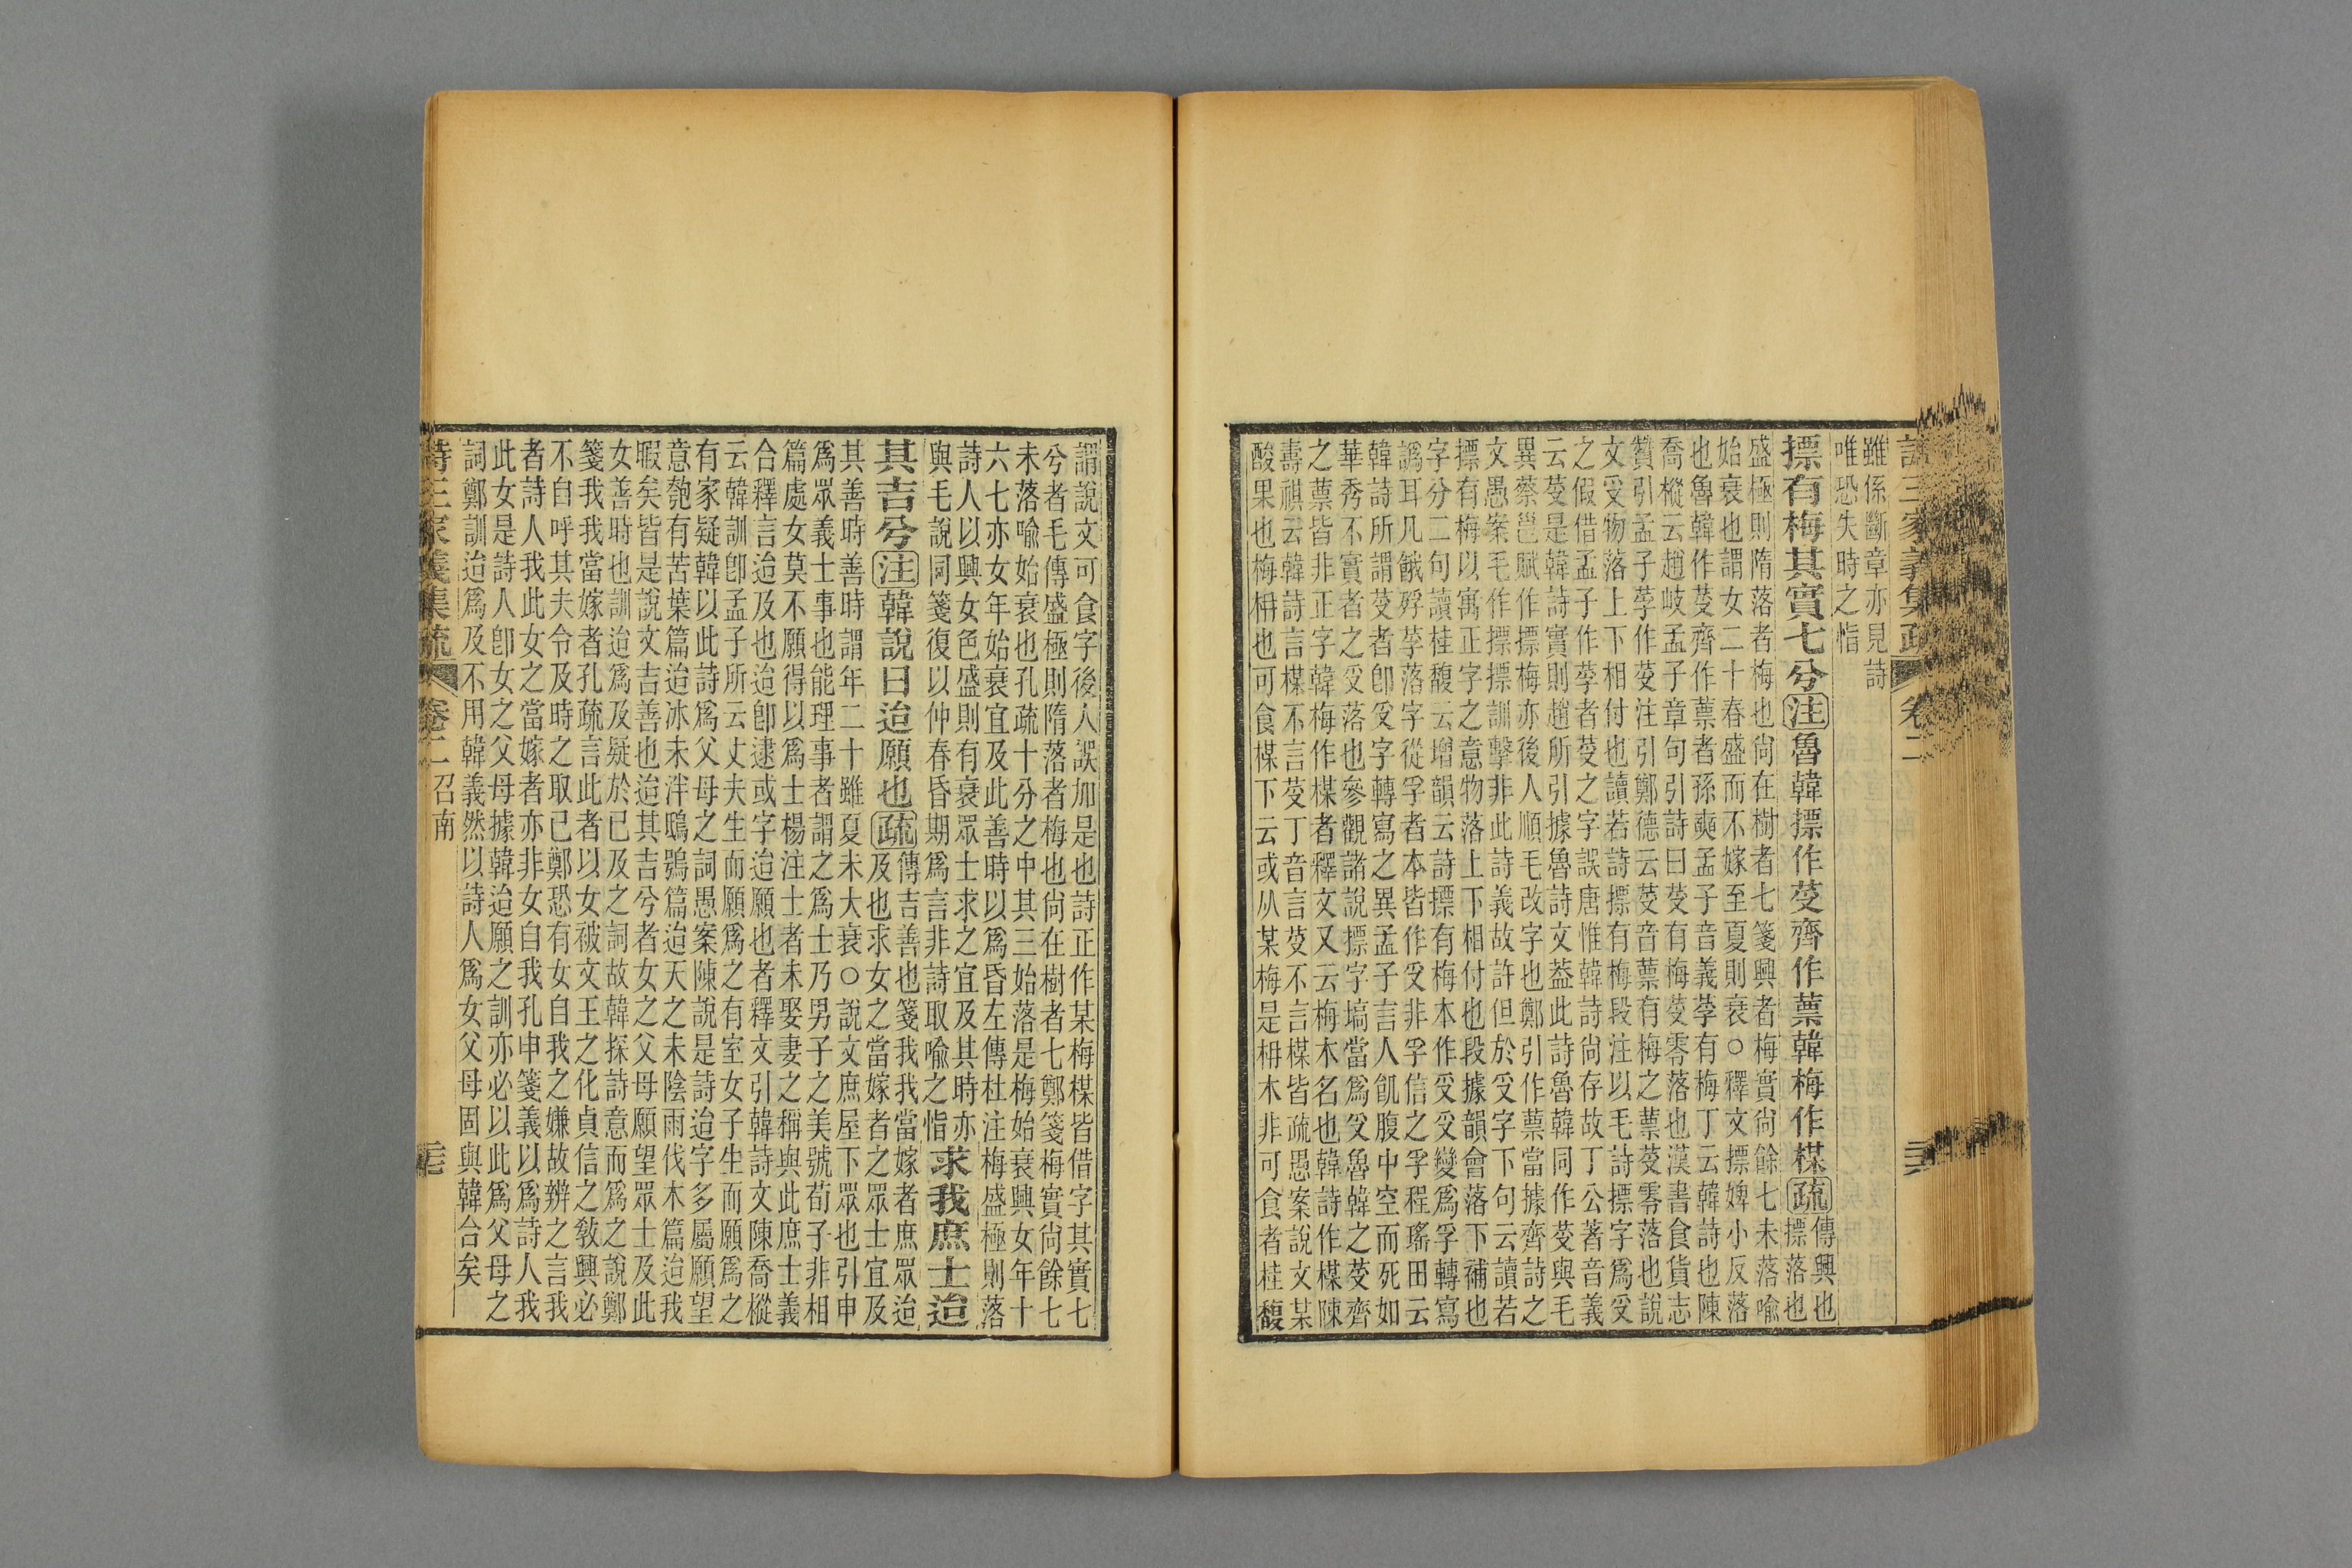 雖係斷章亦見詩
唯恐失時之恉
摽有梅其實七兮注魯韓摽作芰齊作蔈韓梅作楳疏傳興也
摽落也
盛極則隋落者梅也尚在樹者七箋興者梅實尚餘七未落喻
始衰也謂女二十春盛而不嫁至夏則衰○釋文摽婢小反落
也魯韓作芰齊作蔈者孫奭孟子音義莩有梅丁云韓詩也陳
喬樅云趙岐孟子章句引詩曰芰有梅芰零落也漢書食貨志
贊引孟子莩作芰注引鄭德云芰音蔈有梅之蔈芰零落也說
文𠬪物落上下相付也讀若詩摽有梅段注以毛詩摽字爲𠬪
之假借孟子作莩者芰之字誤唐惟韓詩尚存故丁公著音義
云芰是韓詩實則趙所引據魯詩文葢此詩魯韓同作芰與毛
異蔡邕賦作摽梅亦後人順毛改字也鄭引作蔈當據齊詩之
文愚案毛作摽摽訓擊非此詩義故許但於𠬪字下句云讀若
摽有梅以寓正字之意物落上下相付也段據韻會落下補也
字分二句讀桂馥云增韻云詩摽有梅本作𠬪𠬪變爲孚轉寫
譌耳凡餓殍莩落字從孚者本皆作𠬪非孚信之孚程瑤田云
韓詩所謂芰者卽𠬪字轉寫之異孟子言人飢腹中空而死如
華秀不實者之𠬪落也參觀諸說摽字塙當爲𠬪魯韓之芰齊
之蔈皆非正字韓梅作楳者釋文又云梅木名也韓詩作楳陳
壽祺云韓詩言楳不言芰丁音言芰不言楳皆疏愚案說文某
酸果也梅枏也可食楳下云或从某梅是枏木非可食者桂馥
謂說文可食字後人誤加是也詩正作某梅楳皆借字其實七
兮者毛傳盛極則隋落者梅也尚在樹者七鄭箋梅實尚餘七
未落喻始衰也孔疏十分之中其三始落是梅始衰興女年十
六七亦女年始衰宜及此善時以爲昏左傳杜注梅盛極則落
詩人以興女色盛則有衰眾士求之宜及其時亦
與毛說同箋復以仲春昏期爲言非詩取喻之恉求我庶士迨
其吉兮注韓說曰迨願也疏傳吉善也箋我我當嫁者庶眾迨
及也求女之當嫁者之眾士宜及
其善時善時謂年二十雖夏未大衰○說文庶屋下眾也引申
爲眾義士事也能理事者謂之爲士乃男子之美號荀子非相
篇處女莫不願得以爲士楊注士者未娶妻之稱與此庶士義
合釋言迨及也迨卽逮或字迨願也者釋文引韓詩文陳喬樅
云韓訓卽孟子所云丈夫生而願爲之有室女子生而願爲之
有家疑韓以此詩爲父母之詞愚案陳說是詩迨字多屬願望
意匏有苦葉篇迨冰未泮鴟鴞篇迨天之未陰雨伐木篇迨我
暇矣皆是說文吉善也迨其吉兮者女之父母願望眾士及此
女善時也訓迨爲及疑於已及之詞故韓探詩意而爲之說鄭
箋我我當嫁者孔疏言此者以女被文王之化貞信之敎興必
不自呼其夫令及時之取已鄭恐有女自我之嫌故辨之言我
者詩人我此女之當嫁者亦非女自我孔申箋義以爲詩人我
此女是詩人卽女之父母據韓迨願之訓亦必以此爲父母之
詞鄭訓迨爲及不用韓義然以詩人爲女父母固與韓合矣
詩三家義集疏 卷二 召南